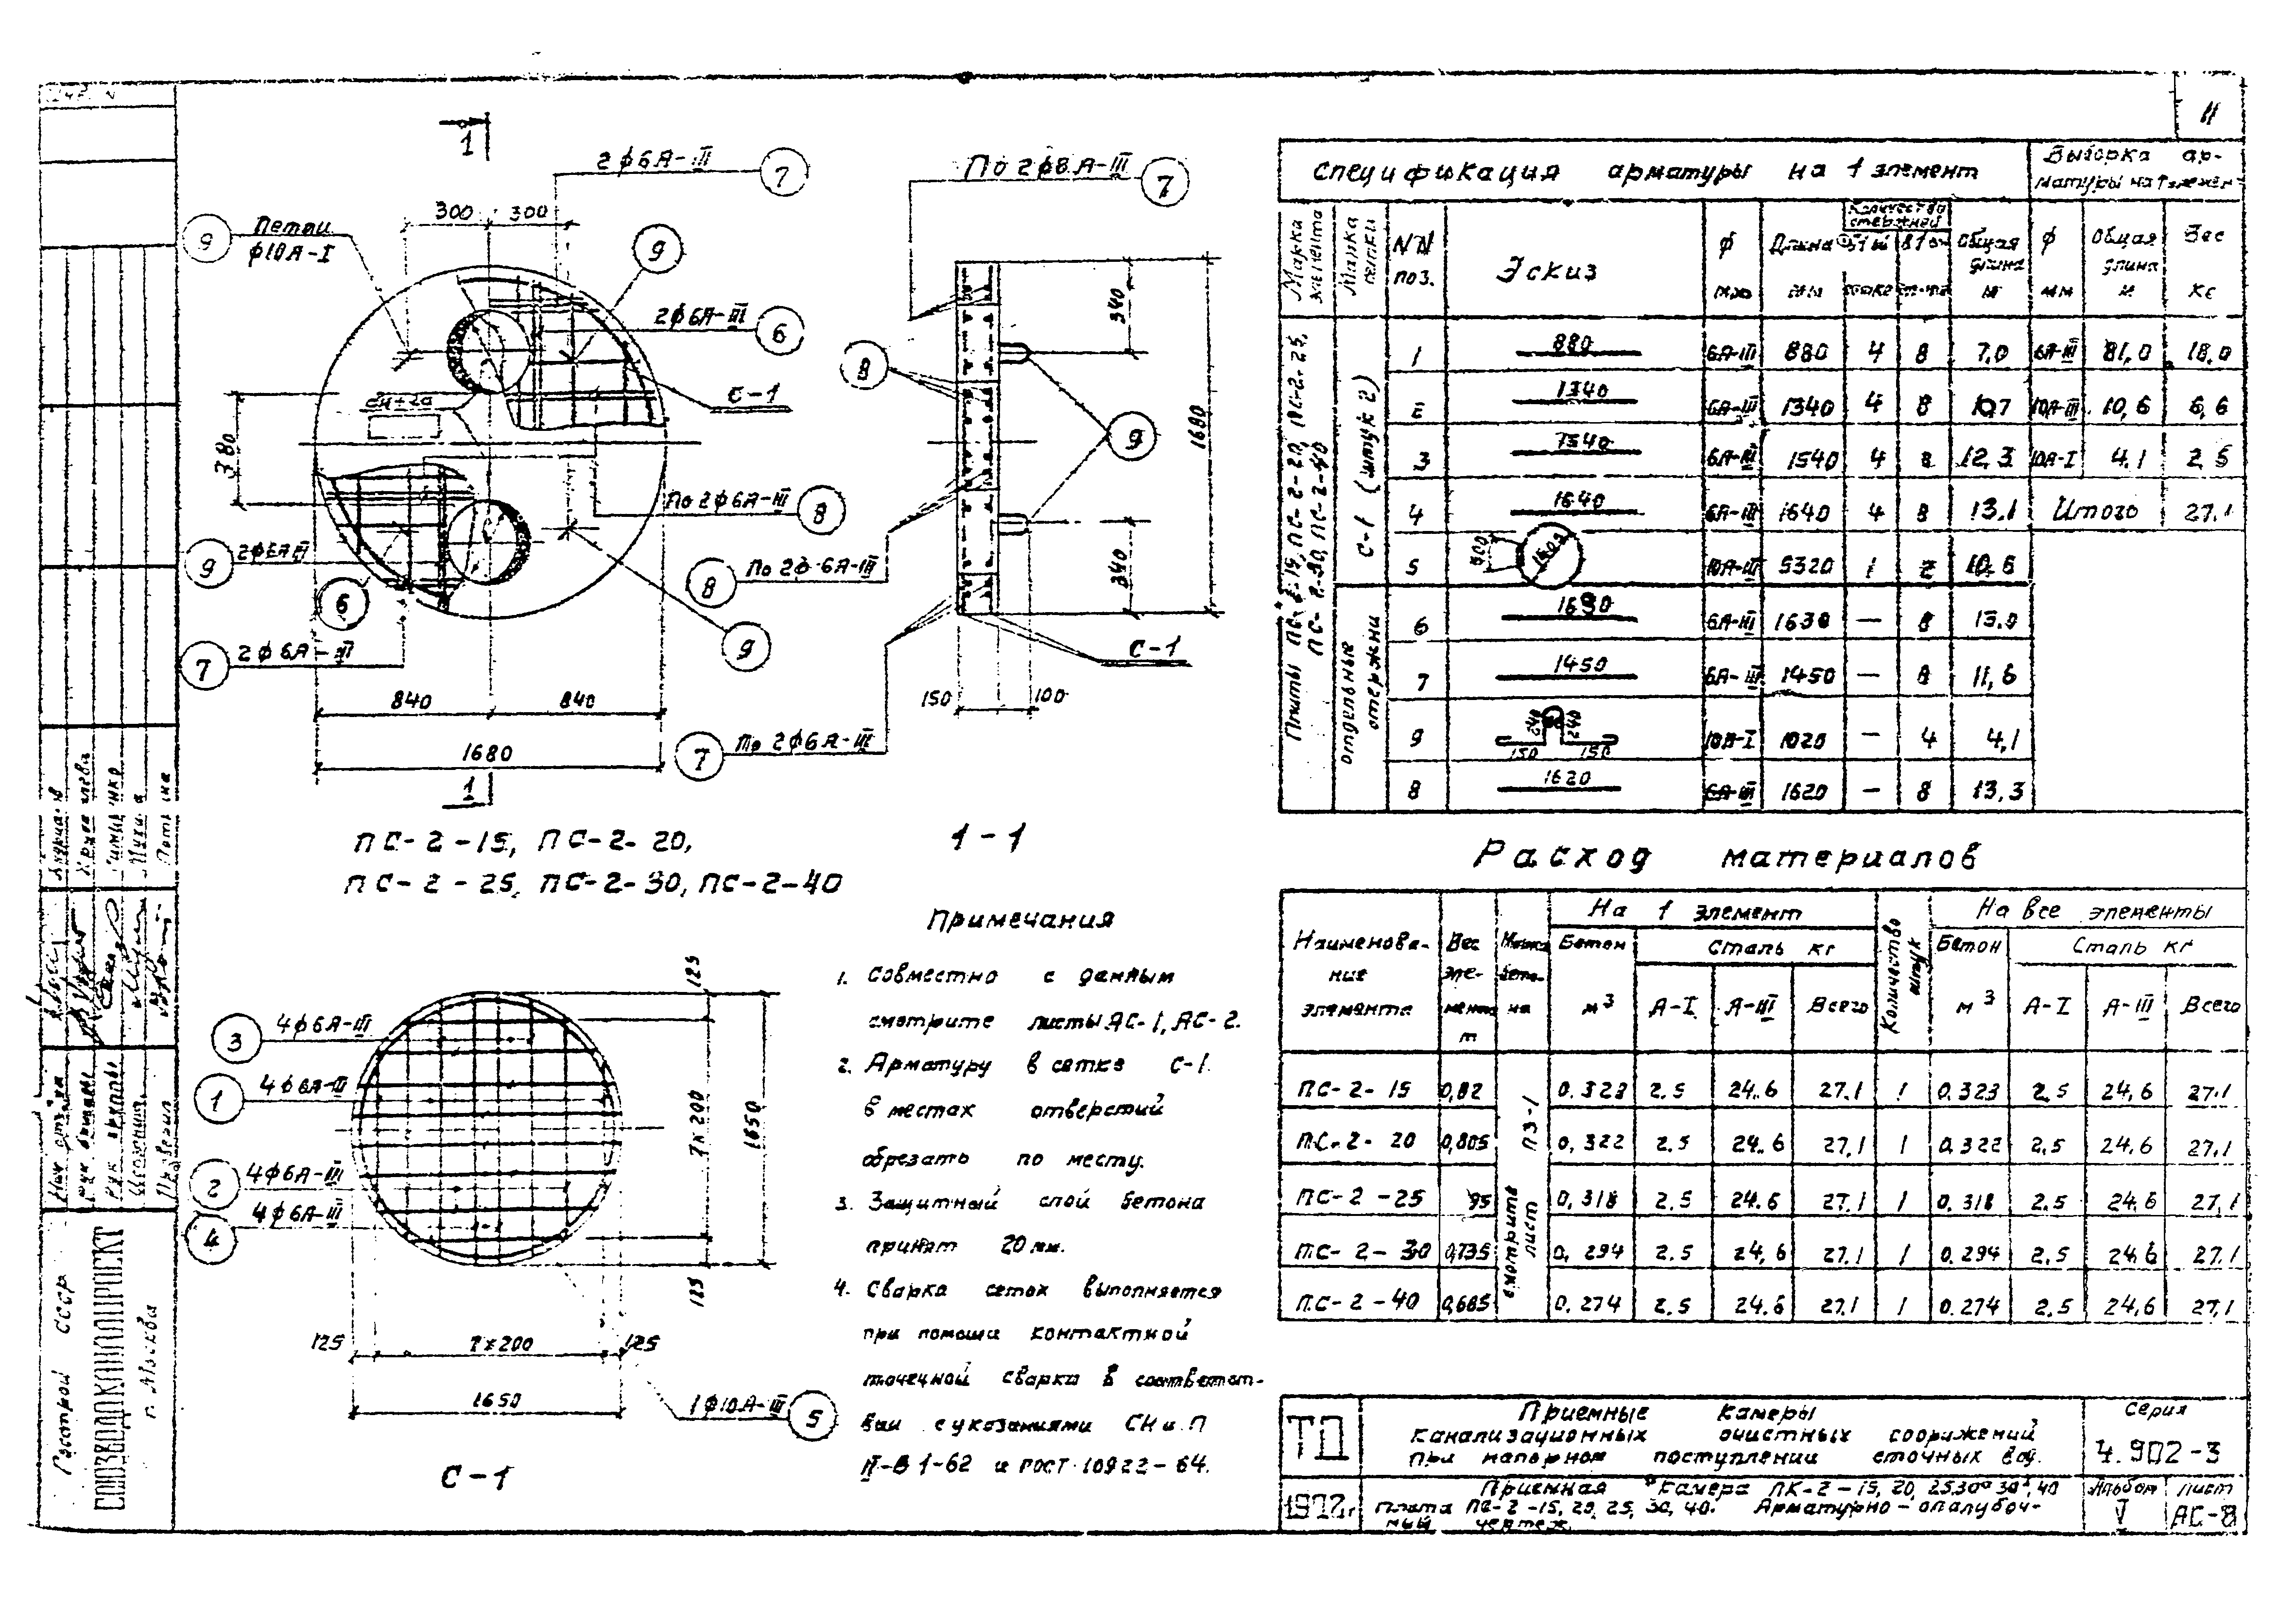 11
1
2ф6А-III
7
300
300
9
Петли
ф10А-I
9
2ф6А-III
6
С-1
380
По 2ф6А-III
8
9
6
7
2ф6А-III
9
840
840
1680
1
ПС-2-15, ПС-2-20,
ПС-2-25, ПС-2-30, ПС-2-40
По 2ф8А-III
7
8
340
1680
9
8
По 2ф6А-III
340
С-1
150
100
7
По 2ф6А-III
1-1
3
4ф6А-III
1
4ф6А-III
2
4ф6А-III
4
4ф6А-III
125
7х200
1650
125
125
7х200
125
1650
1ф10А-III
5
С-1
Примечания
1. Совместно с данным
смотрите листы АС-1, АС-2.
2. Арматуру в сетке С-1.
в местах отверстий
обрезать по месту.
3. Защитный слой бетона
принят 20 мм.
4. Сварка сеток выполняется
при помощи контактной
точечной сварки в соответст-
вии с указаниями СНиП
III-В 1-62 и ГОСТ 10922-64.
Спецификация арматуры на 1 элемент
Выборка ар-
матуры на 1 элемент
Марка элемента
Марка сетки
NN поз.
Эскиз
ф мм
Длина мм
Количество стержней
Общая длина м
ф мм
Общая длина м
Вес кг
Плиты ПС-2-15, ПС-2-20, ПС-2-25,
ПС-2-30, ПС-2-40
С-1 (штук 2)
1 880 6А-III 880 4 8 7,0 6А-III 81,0 18,0
2 1340 6А-III 1340 4 8 10,7 10А-III 10,6 6,6
3 1540 6А-III 1540 4 8 12,3 10А-I 4,1 2,5
4 1640 6А-III 1640 4 8 13,1 Итого 27,1
5 10А-III 5320 1 2 10,6
Отдельные стержни
6 1630 6А-III 1630 — 8 13,0
7 1450 6А-III 1450 — 8 11,6
9 240 240 150 150 10А-I 1020 — 4 4,1
8 1620 6А-III 1620 — 8 13,3
Расход материалов
Наименова-
ние
элемента
Вес
эле-
мента
т
Марка
бето-
на
На 1 элемент
Бетон
м³
Сталь кг
А-I А-III Всего
Количество штук
На все элементы
Бетон
м³
Сталь кг
А-I А-III Всего
смотрите лист ПЗ-1
ПС-2-15 0,82 0.323 2.5 24.6 27.1 1 0.323 2.5 24,6 27.1
ПС-2-20 0,805 0,322 2.5 24.6 27.1 1 0.322 2,5 24,6 27.1
ПС-2-25 0,318 2.5 24.6 27.1 1 0.318 2.5 24,6 27,1
ПС-2-30 0,735 0,294 2.5 24,6 27.1 1 0.294 2.5 24,6 27.1
ПС-2-40 0,685 0.274 2.5 24.6 27.1 1 0.274 2.5 24,6 27,1
ТД
1972г
Приемные камеры
канализационных очистных сооружений
при напорном поступлении сточных вод.
Серия
4.902-3
Приемная камера ПК-2-15, 20, 25, 30ᵃ 30ᵟ, 40
Плита ПС-2-15, 20, 25, 30, 40. Арматурно-опалубоч-
ный чертеж.
Альбом
V
Лист
АС-8
Госстрой СССР
СОЮЗВОДОКАНАЛПРОЕКТ
г. Москва